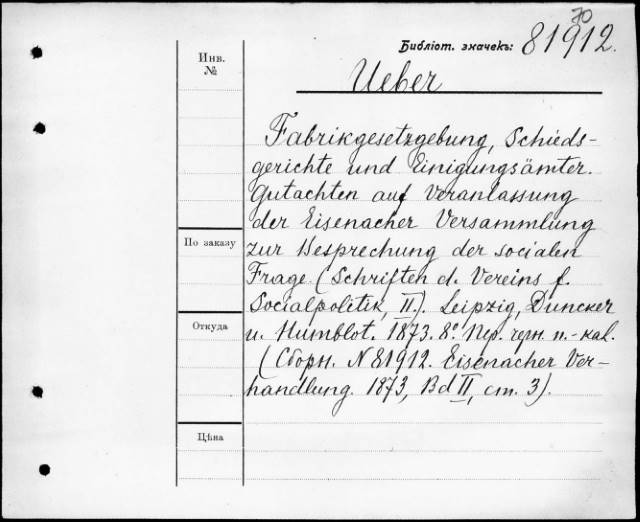 70
Библіот. значекъ: 81912.
Инв.
№
Ueber
Fabrikgesetzgebung, Schieds-
gerichte und Einigungsämter.
Gutachten auf Veranlassung
der Eisenacher Versammlung
zur Besprechung der socialen
Frage. (Schriften d. Vereins f.
Socialpolitik, II). Leipzig, Duncker
u. Humblot. 1873. 8º. Пер. черн. п.-кал.
(Сборн. N 81912. Eisenacher Ver-
handlung. 1873, Bd II, ст. 3).
По заказу
Откуда
Цѣна